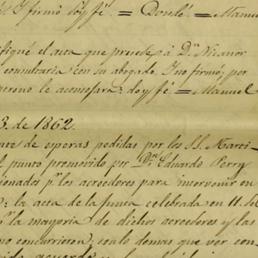 y firmó doy fé. = Donoso. = Manuel
fiqué el acta que precede á D. Nicanor
consultaria con su abogado. I no firmó; por
no le aconsejara: doy fé. = Manuel
3. de 1862.
de esperas pedidas por los SS. Marci-
el punto promovido por Dn. Eduardo Perry
sionados pr. los acreedores para intervenir en
: la acta de la junta celebrada en 11.
pr. la mayoria de dichos acreedores y las
no concurrieron; con lo demas que ver con-